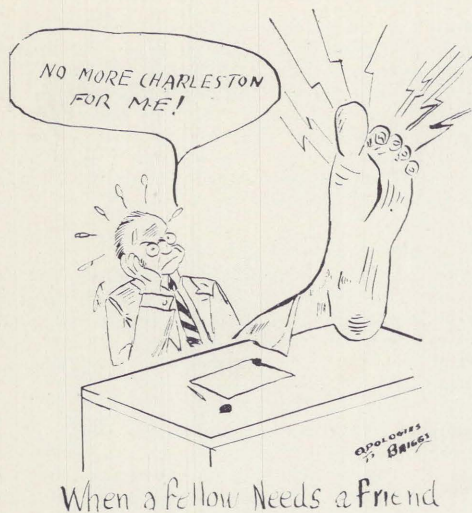 NO MORE CHARLESTON
FOR ME!
APOLOGIES
TO BRIGGS
When a fellow Needs a friend